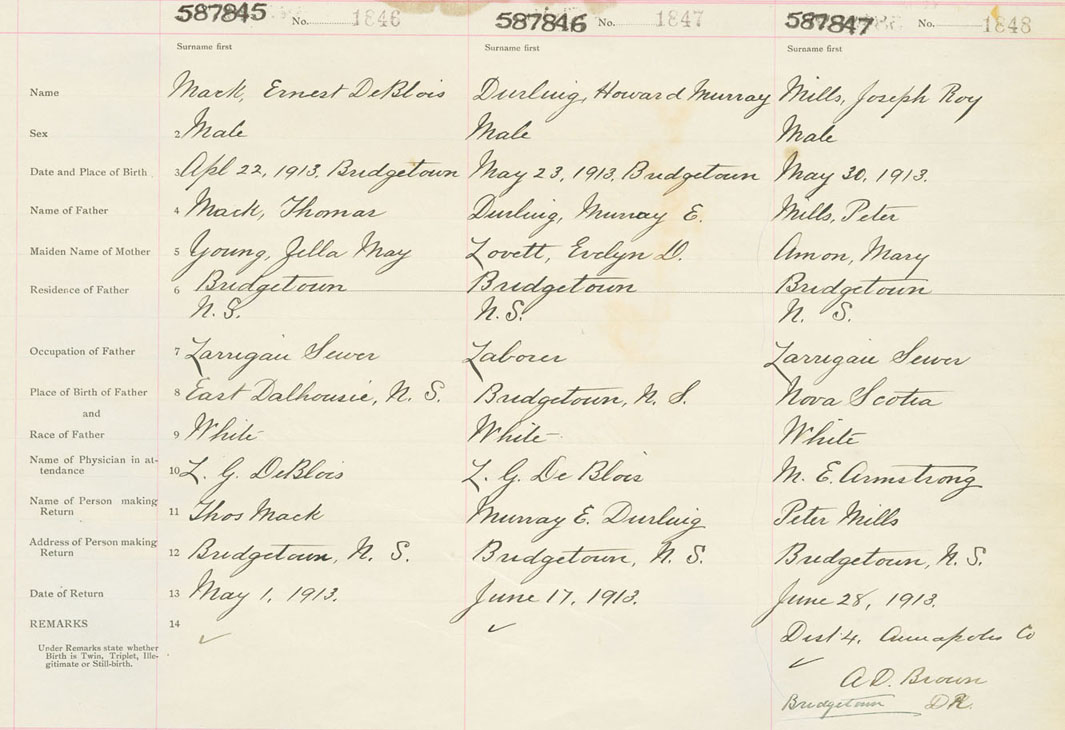 587845 No. 1846 587846 No. 1847 587847 No. 1848
Surname first Surname first Surname first
Name Mack, Ernest DeBlois Durling, Howard Murray Mills, Joseph Roy
Sex 2 Male Male Male
Date and Place of Birth 3 Apl 22, 1913. Bridgetown May 23, 1913. Bridgetown May 30, 1913.
Name of Father 4 Mack, Thomas Durling, Murray E. Mills, Peter
Maiden Name of Mother 5 Young, Jella May Lovett, Evelyn D. Amon, Mary
Residence of Father 6 Bridgetown Bridgetown Bridgetown
N.S. N.S. N. S.
Occupation of Father 7 Larrigan Sewer Laborer Larrigan Sewer
Place of Birth of Father 8 East Dalhousie, N. S. Bridgetown, N. S. Nova Scotia
and
Race of Father 9 White White White
Name of Physician in at-
tendance 10 L. G. DeBlois L. G. De Blois M. E. Armstrong
Name of Person making
Return 11 Thos Mack Murray E. Durling Peter Mills
Address of Person making
Return 12 Bridgetown, N. S. Bridgetown, N. S. Bridgetown, N. S.
Date of Return 13 May 1, 1913. June 17, 1913. June 28, 1913.
REMARKS 14 Dist 4, Annapolis Co
Under Remarks state whether
Birth is Twin, Triplet, Ille-
gitimate or Still-birth.
A.D. Brown
Bridgetown D.R.